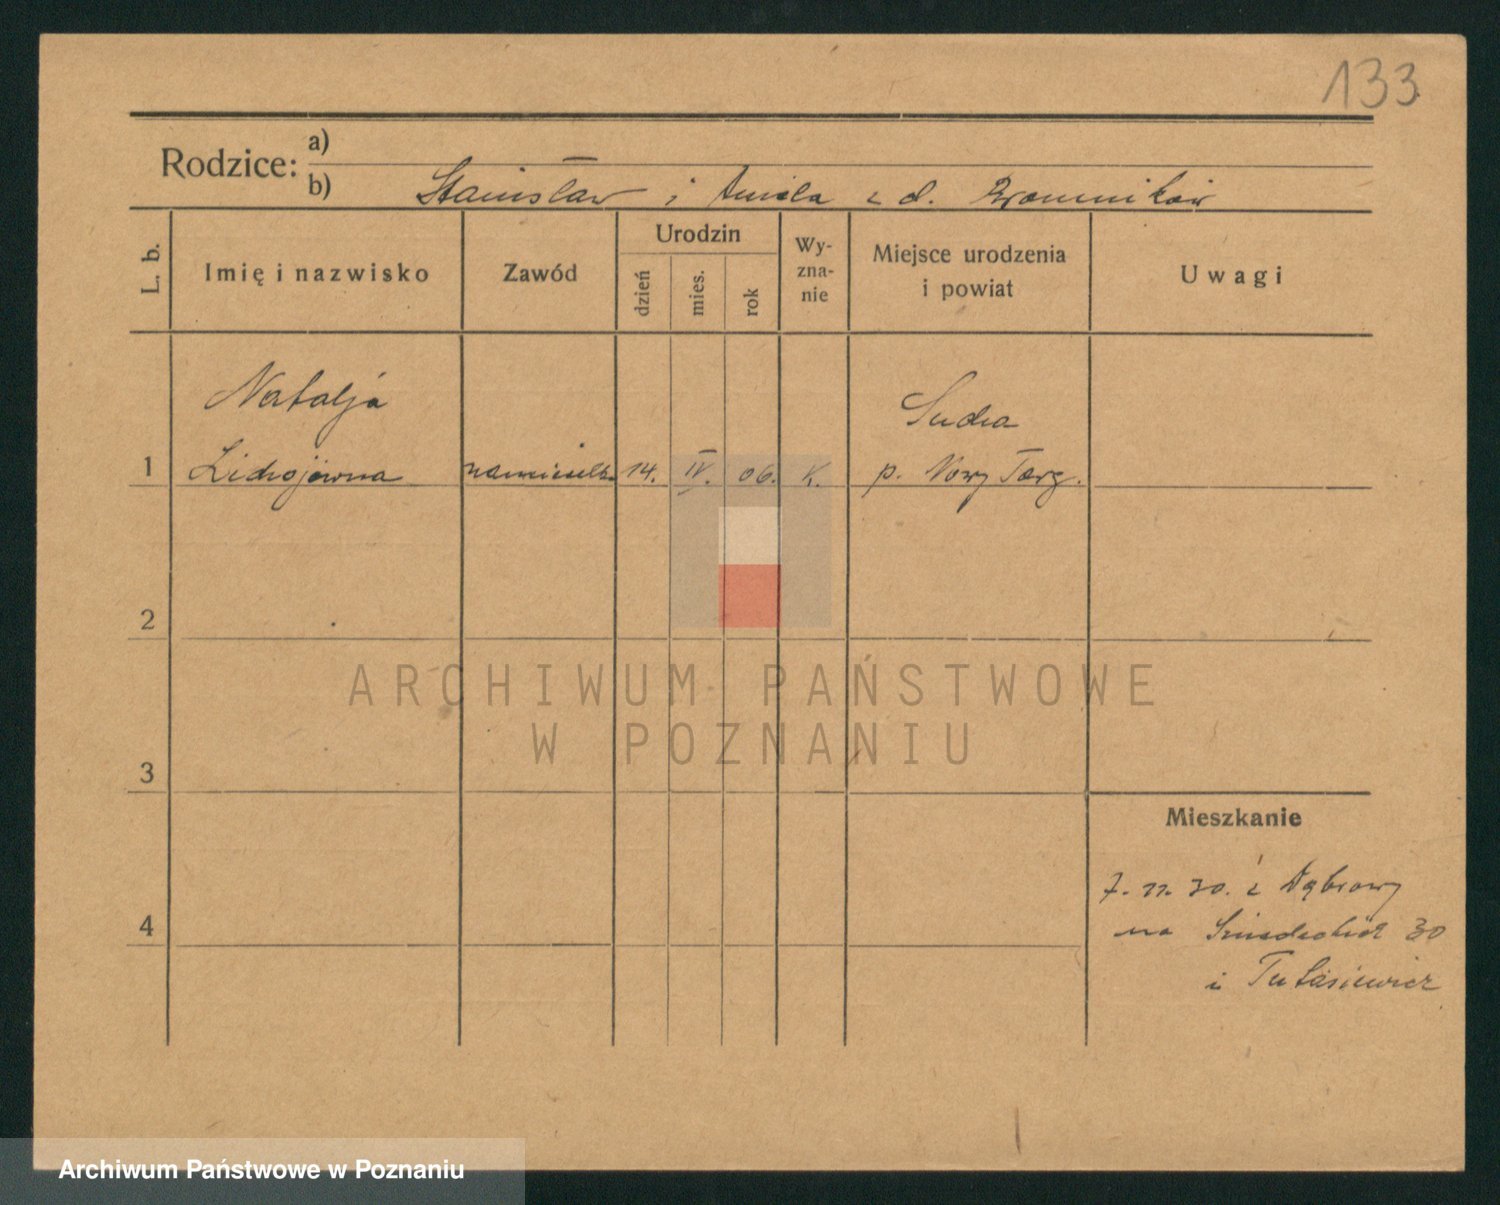 133
Rodzice: a)
b) Stanisław i Aniela z d.
L. b.
Imię i nazwisko
Zawód
Urodzin
dzień
mies.
rok
Wy-
zna-
nie
Miejsce urodzenia
i powiat
Uwagi
Natalja
Sucha
1 14. IV. 06. K. p. Nowy Targ.
2
ARCHIWUM PAŃSTWOWE
W POZNANIU
3
Mieszkanie
7. 30. z Dąbrowy
4
na 30
i
Archiwum Państwowe w Poznaniu